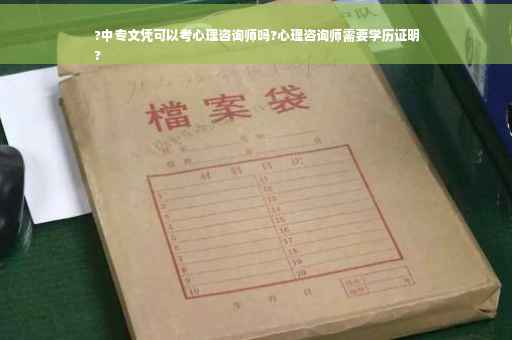 ?中专文凭可以考心理咨询师吗?心理咨询师需要学历证明
?
檔案袋
材料目次
1 11
2 12
3 13
4 14
5 15
6 16
7 17
8 18
9 19
10 20
年 月 日